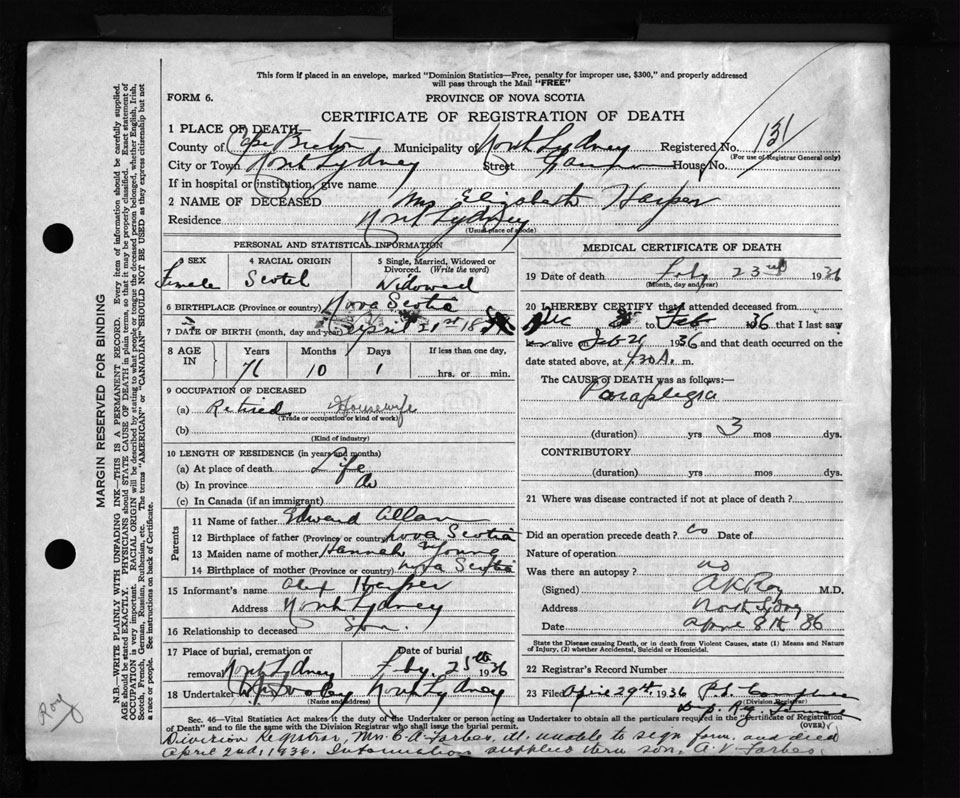 This form if placed in an envelope, marked "Dominion Statistics—Free, penalty for improper use, $300," and properly addressed
will pass through the Mail "FREE"
FORM 6. PROVINCE OF NOVA SCOTIA
CERTIFICATE OF REGISTRATION OF DEATH
1 PLACE OF DEATH—
County of Cape Breton Municipality of North Sydney Registered No. 131
(For use of Registrar General only)
City or Town North Sydney Street House No.
If in hospital or institution, give name
2 NAME OF DECEASED Mrs Elizabeth Harper
Residence North Sydney
(Usual place of abode)
PERSONAL AND STATISTICAL INFORMATION
3 SEX 4 RACIAL ORIGIN 5 Single, Married, Widowed or Divorced. (Write the word)
Female Scotch Widowed
6 BIRTHPLACE (Province or country) Nova Scotia
7 DATE OF BIRTH (month, day and year) April
8 AGE IN Years Months Days If less than one day,
71 10 1 hrs. or min.
9 OCCUPATION OF DECEASED
(a) Retired Housewife
(Trade or occupation or kind of work)
(b)
(Kind of industry)
10 LENGTH OF RESIDENCE (in years and months)
(a) At place of death Life
(b) In province Do
(c) In Canada (if an immigrant)
Parents
11 Name of father Edward Allan
12 Birthplace of father (Province or country) Nova Scotia
13 Maiden name of mother Hannah Young
14 Birthplace of mother (Province or country) Nova Scotia
15 Informant's name Alex Harper
Address North Sydney
16 Relationship to deceased Son.
17 Place of burial, cremation or removal Date of burial
North Sydney Feby. 25th 1936
18 Undertaker North Sydney
(Name and address)
MEDICAL CERTIFICATE OF DEATH
19 Date of death Feby 23rd 1936
(Month, day and year)
20 I HEREBY CERTIFY that I attended deceased from
Dec 35 to Feb 1936 that I last saw
her alive Feb 21 1936 and that death occurred on the
date stated above, at 4 30 A. m.
The CAUSE OF DEATH was as follows:—
Paraplegia
(duration) yrs 3 mos dys.
CONTRIBUTORY
(duration) yrs mos dys.
21 Where was disease contracted if not at place of death?
Did an operation precede death? no Date of
Nature of operation
Was there an autopsy? no
(Signed) A K Roy M.D.
Address North Sydney
Date April 8th 36
State the Disease causing Death, or in death from Violent Causes, state (1) Means and Nature
of Injury, (2) whether Accidental, Suicidal or Homicidal.
22 Registrar's Record Number
23 Filed April 29th. 1936
(Division Registrar)
Sec. 46—Vital Statistics Act makes it the duty of the Undertaker or person acting as Undertaker to obtain all the particulars required in the "Certificate of Registration
of Death" and to file the same with the Division Registrar who shall issue the burial permit. (OVER)
Division Registrar, Mrs. C. A. Forbes, ill, unable to sign form, and died
April 2nd, 1936. Information supplied thru son, A. V. Forbes.
MARGIN RESERVED FOR BINDING
N.B.—WRITE PLAINLY WITH UNFADING INK—THIS IS A PERMANENT RECORD. Every item of information should be carefully supplied.
AGE should be stated EXACTLY. PHYSICIANS should STATE CAUSE OF DEATH in plain terms, so that it may be properly classified. Exact statement of
OCCUPATION is very important. RACIAL ORIGIN will be described by stating to what people or tongue the deceased person belonged, whether English, Irish,
Scotch, French, German, Russian, Ruthenian, etc. The terms "AMERICAN" or "CANADIAN" SHOULD NOT BE USED as they express citizenship but not
a race or people. See instructions on back of Certificate.
Roy